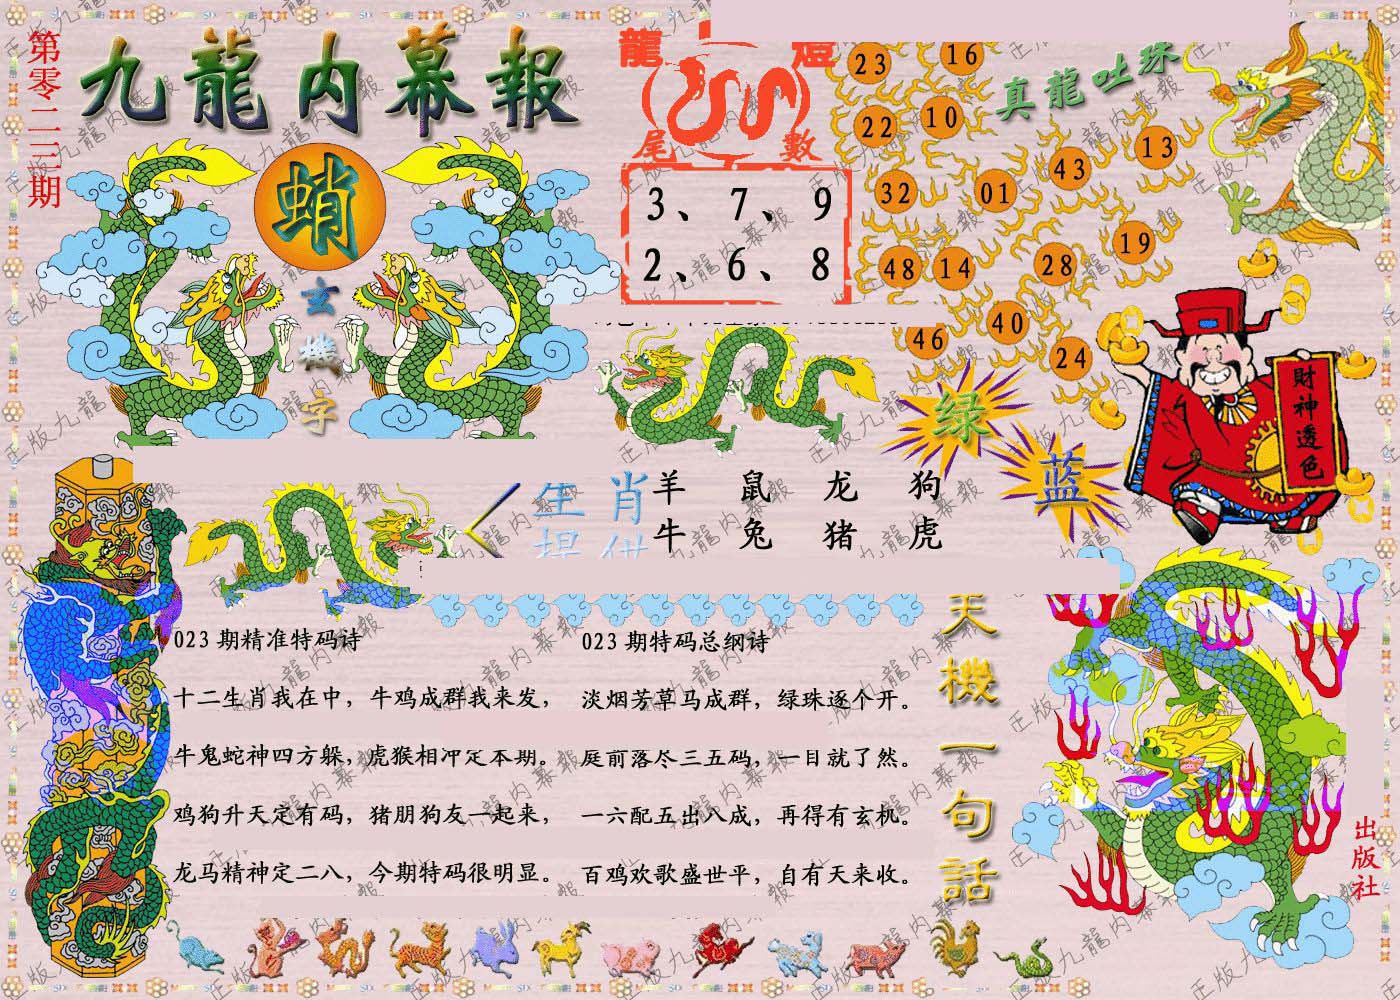 第零二三期
九龍内幕報
蛸
玄機字
龍 燈
尾 數
3、7、9
2、6、8
23 16
22 10
真龍吐珠
13
43
32 01
19
28
48 14
40
46
24
绿
蓝
財神透色
生肖
提供
羊 鼠 龙 狗
牛 兔 猪 虎
023期精准特码诗
十二生肖我在中，牛鸡成群我来发，
牛鬼蛇神四方躲，虎猴相冲定本期。
鸡狗升天定有码，猪朋狗友一起来，
龙马精神定二八，今期特码很明显。
023期特码总纲诗
淡烟芳草马成群，绿珠逐个开。
庭前落尽三五码，一目就了然。
一六配五出八成，再得有玄机。
百鸡欢歌盛世平，自有天来收。
天機一句話
出版社
正版九龍内幕報